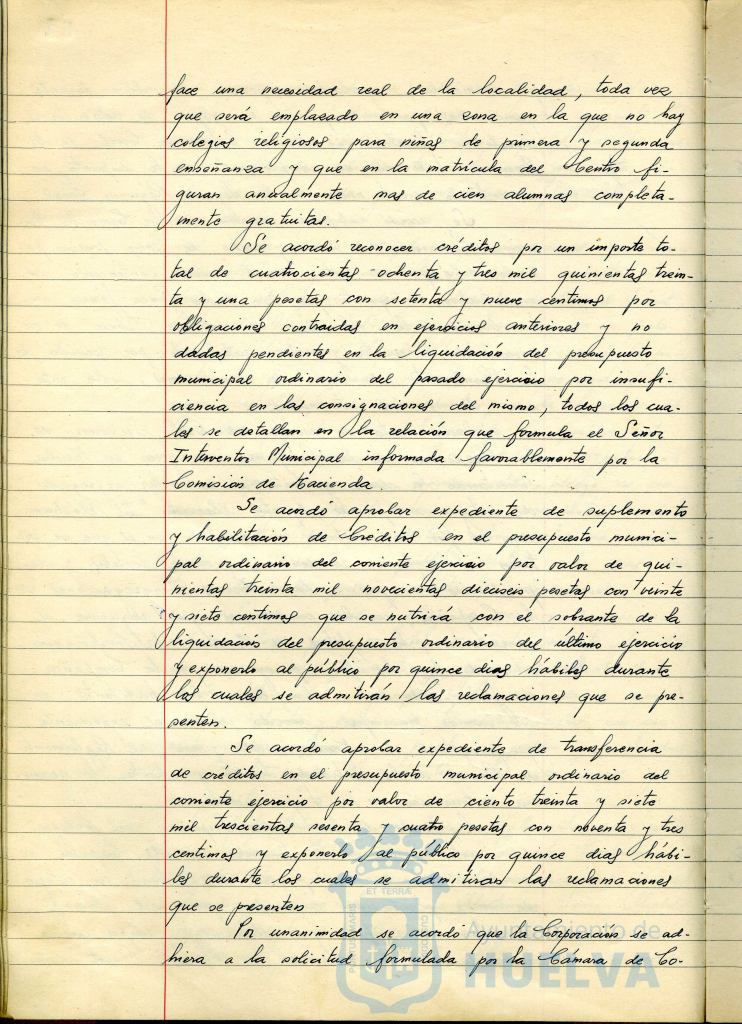 face una necesidad real de la localidad, toda vez
que será emplazado en una zona en la que no hay
colegios religiosos para niñas de primera y segunda
enseñanza y que en la matrícula del Centro fi-
guran anualmente mas de cien alumnas completa-
mente gratuitas.
Se acordó reconocer créditos por un importe to-
tal de cuatrocientas ochenta y tres mil quinientas trein-
ta y una pesetas con setenta y nueve centimos por
obligaciones contraidas en ejercicios anteriores y no
dadas pendientes en la liquidación del presupuesto
municipal ordinario del pasado ejercicio por insufi-
ciencia en las consignaciones del mismo, todos los cua-
les se detallan en la relación que formula el Señor
Interventor Municipal informada favorablemente por la
Comisión de Hacienda.
Se acordó aprobar expediente de suplemento
y habilitación de Créditos en el presupuesto munici-
pal ordinario del corriente ejercicio por valor de qui-
nientas treinta mil novecientas dieciseis pesetas con veinte
y siete centimos que se nutrirá con el sobrante de la
liquidación del presupuesto ordinario del último ejercicio
y exponerlo al público por quince dias hábiles durante
los cuales se admitirán las reclamaciones que se pre-
senten.
Se acordó aprobar expediente de transferencia
de créditos en el presupuesto municipal ordinario del
corriente ejercicio por valor de ciento treinta y siete
mil trescientas sesenta y cuatro pesetas con noventa y tres
centimos y exponerlo al público por quince dias hábi-
les durante los cuales se admitiran las reclamaciones
que se presenten
Por unanimidad se acordó que la Corporación se ad-
hiera a la solicitud formulada por la Cámara de Co-
ET TERRÆ
Ayuntamiento de
HUELVA